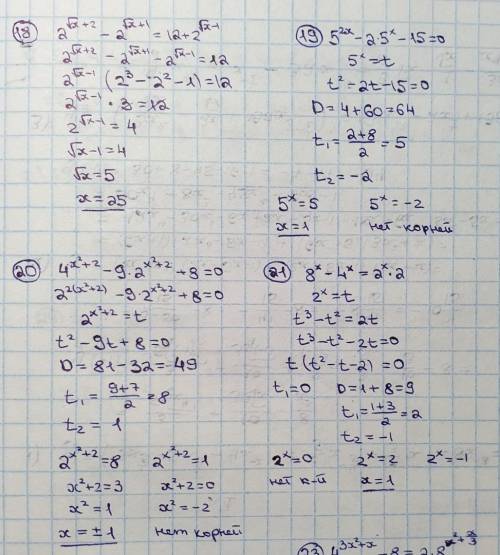 18 2^(√x+2) - 2^(√x+1) = 12 + 2^(√x-1)
2^(√x+2) - 2^(√x+1) - 2^(√x-1) = 12
2^(√x-1) (2^3 - 2^2 - 1) = 12
2^(√x-1) · 3 = 12
2^(√x-1) = 4
√x - 1 = 4
√x = 5
x = 25
19 5^(2x) - 2·5^x - 15 = 0
5^x = t
t^2 - 2t - 15 = 0
D = 4 + 60 = 64
t₁ = (2+8)/2 = 5
t₂ = -2
5^x = 5 5^x = -2
x = 1 нет корней
20 4^(x^2+2) - 9·2^(x^2+2) + 8 = 0
2^(2(x^2+2)) - 9·2^(x^2+2) + 8 = 0
2^(x^2+2) = t
t^2 - 9t + 8 = 0
D = 81 - 32 = 49
t₁ = (9+7)/2 = 8
t₂ = 1
2^(x^2+2) = 8 2^(x^2+2) = 1
x^2 + 2 = 3 x^2 + 2 = 0
x^2 = 1 x^2 = -2
x = ±1 нет корней
21 8^x - 4^x = 2^x · 2
2^x = t
t^3 - t^2 = 2t
t^3 - t^2 - 2t = 0
t (t^2 - t - 2) = 0
t₁ = 0 D = 1 + 8 = 9
t₁ = (1+3)/2 = 2
t₂ = -1
2^x = 0 2^x = 2 2^x = -1
нет к-й x = 1